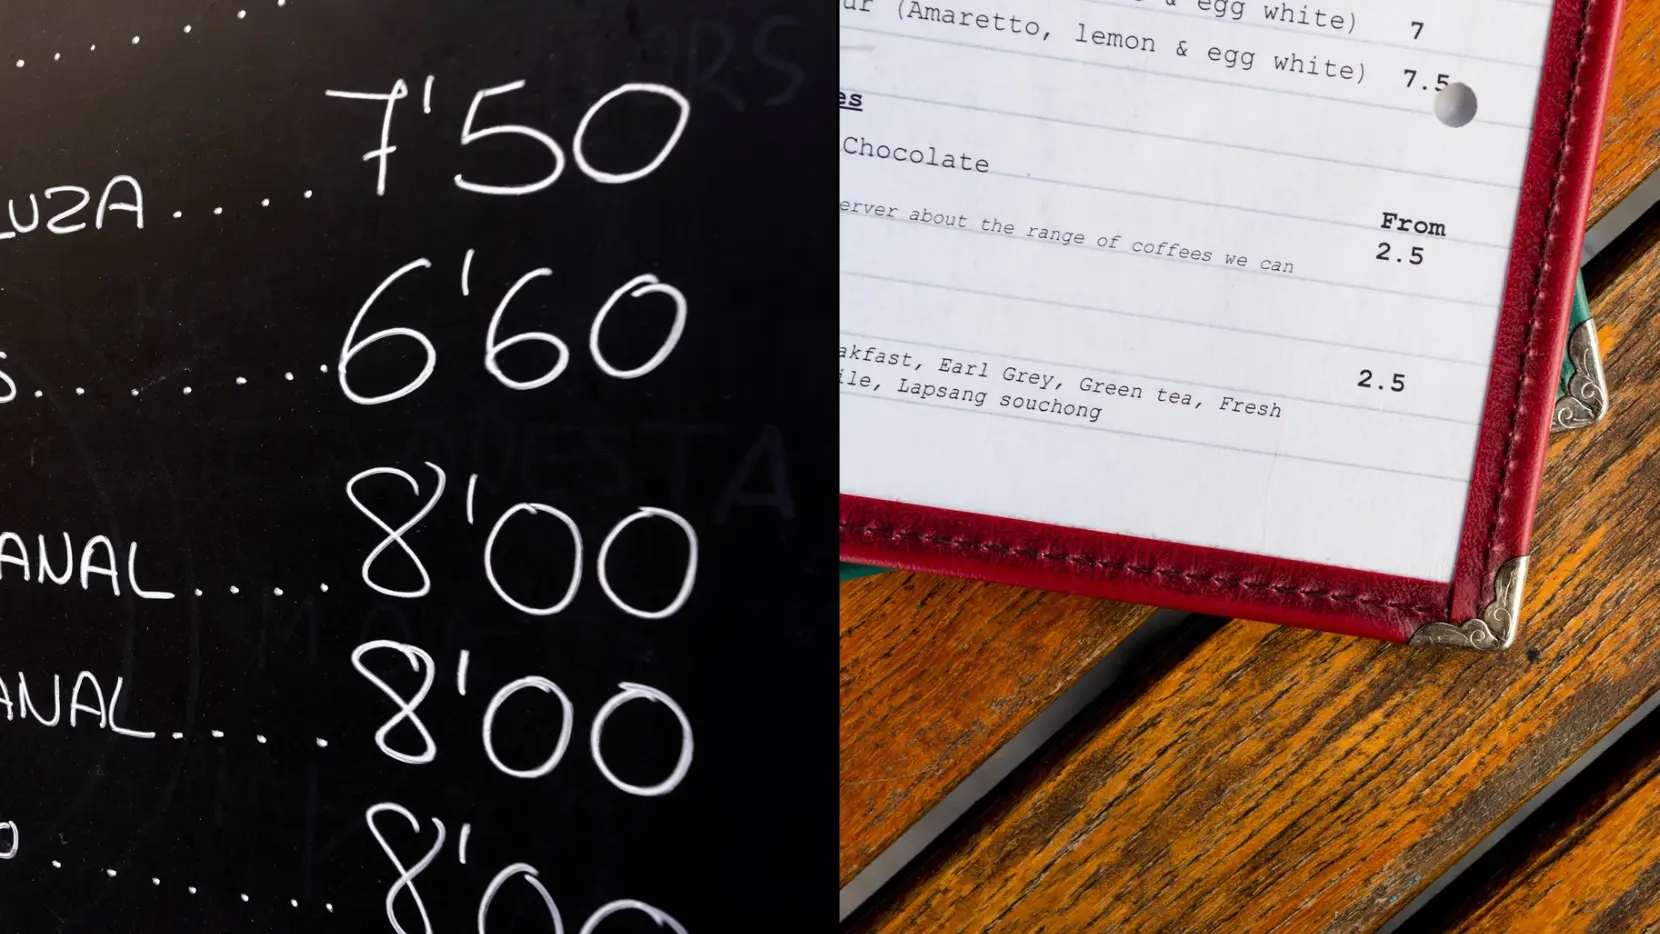 7'50
LUZA....
6'60
S........
8'00
ANAL....
8'00
ANAL....
8'00
O.......
& egg white) 7
ur (Amaretto, lemon & egg white) 7.5
es
Chocolate
From
erver about the range of coffees we can 2.5
akfast, Earl Grey, Green tea, Fresh 2.5
ile, Lapsang souchong